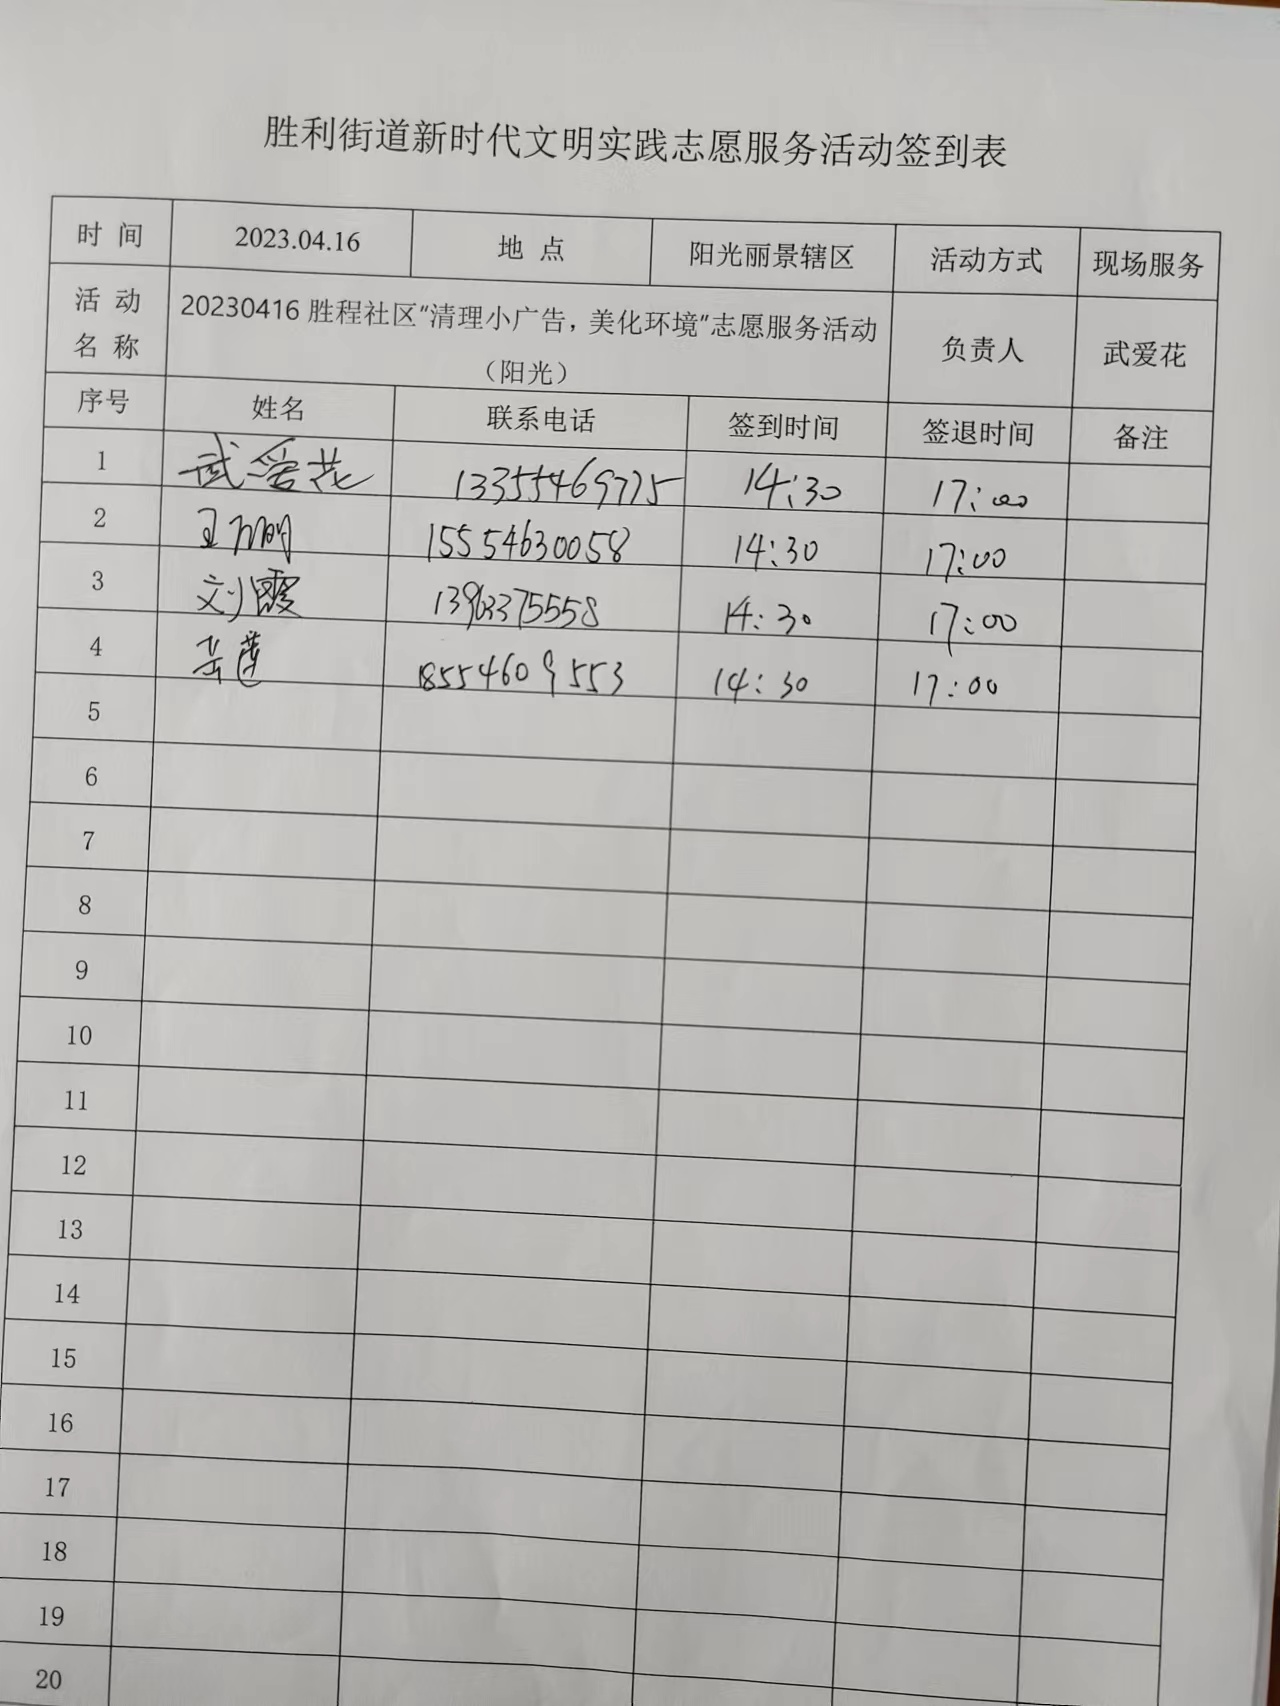 胜利街道新时代文明实践志愿服务活动签到表
时 间 2023.04.16 地 点 阳光丽景辖区 活动方式 现场服务
活 动 名 称 20230416 胜程社区“清理小广告，美化环境”志愿服务活动 （阳光） 负责人 武爱花
序号 姓名 联系电话 签到时间 签退时间 备注
1 武爱花 13355469775 14:30 17:00
2 15554630058 14:30 17:00
3 刘霞 13963375558 14:30 17:00
4 18554609553 14:30 17:00
5
6
7
8
9
10
11
12
13
14
15
16
17
18
19
20